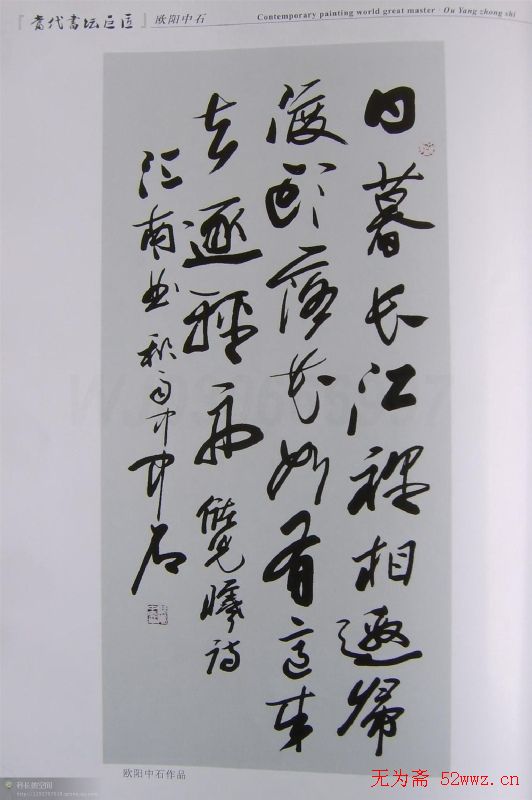 『當代书坛巨匠』欧阳中石
Contemporary painting world great master · Ou Yang zhong shi
日暮长江裡相邀歸
渡頭落花如有意来
去逐輕舟 儲光羲诗
江南曲 秋雨中 中石
欧阳中石作品
无为斋 52wwz.cn